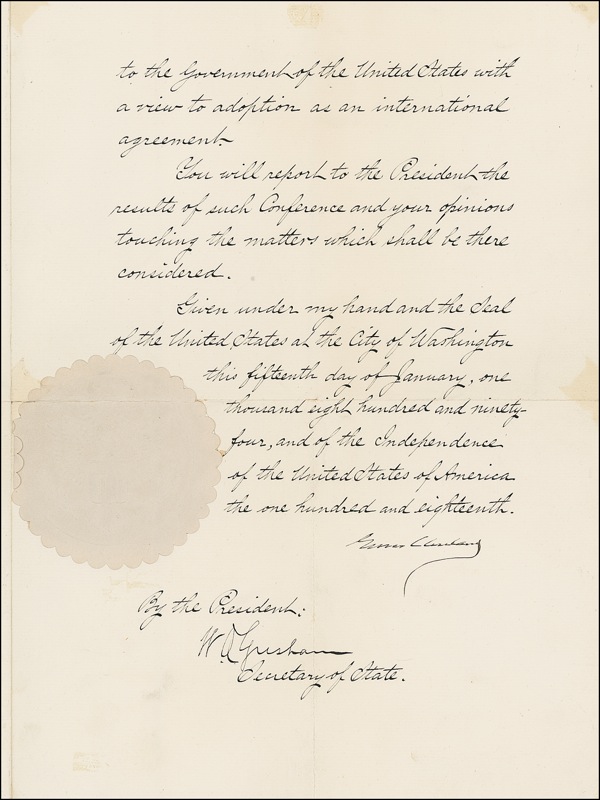 to the Government of the United States with
a view to adoption as an international
agreement.
You will report to the President the
results of such Conference and your opinions
touching the matters which shall be there
considered.
Given under my hand and the Seal
of the United States at the City of Washington
this fifteenth day of January, one
thousand eight hundred and ninety-
four, and of the Independence
of the United States of America
the one hundred and eighteenth.
Grover Cleveland
By the President:
W Q Gresham
Secretary of State.